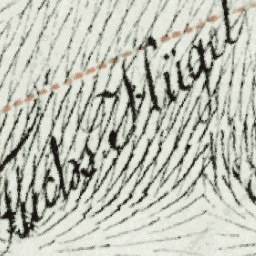 Fuchs Hügel